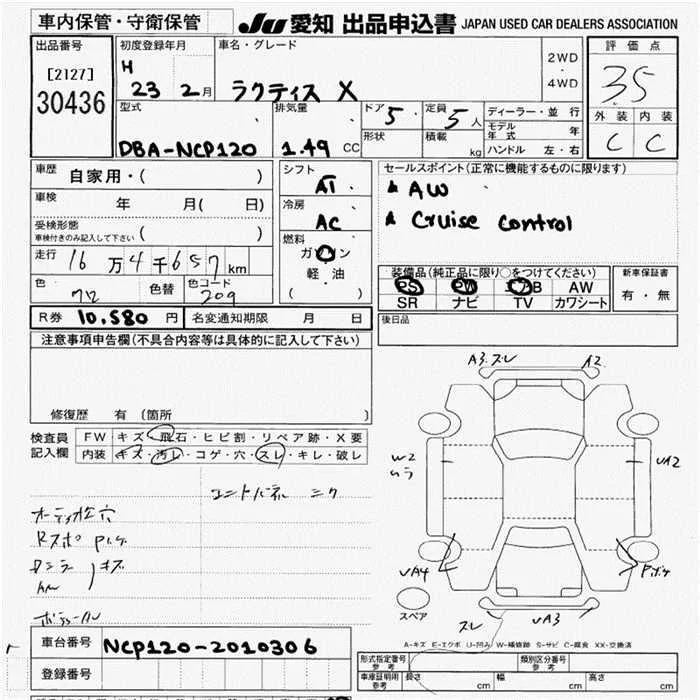 車内保管・守衛保管
JU 愛知 出品申込書 JAPAN USED CAR DEALERS ASSOCIATION
出品番号
[2127]
30436
初度登録年月
H
23 2月
車名・グレード
ラクティス X
2WD
・
4WD
評価点
3.5
外装 内装
C C
型式
DBA-NCP120
排気量
1.49 CC
ドア 5
形状
定員 5人
積載 kg
ディーラー・並行
モデル年式 年
ハンドル 左・右
車歴 自家用・( )
車検 年 月( 日)
受検形態
車検付きのみ記入して下さい ( )
走行 16万4千657km
色 クロ 色替 色コード 209
シフト
AT
冷房
AC
燃料
ガソリン
軽油
( )
セールスポイント(正常に機能するものに限ります)
AW
Cruise Control
装備品(純正品に限り○をつけてください)
PS PW エアB AW
SR ナビ TV カワシート
新車保証書
有・無
R券 10,580円 名変通知期限 月 日
後日品
注意事項申告欄(不具合内容等は具体的に記入して下さい)
修復歴 有 〔箇所 〕
検査員記入欄
FW キズ・飛石・ヒビ割・リペア跡・X要
内装 キズ・汚レ・コゲ・穴・スレ・キレ・破レ
エンドパネル
A3.スレ A2
W2
ムラ
UA2
UA4
スペア
スレ UA3
A-キズ E-エクボ U-凹み W-補修跡 S-サビ C-腐食 XX-交換済
車台番号 NCP120-2010306
登録番号
形式指定番号
参考
類別区分番号
参考
車庫証明用
参考
長さ cm 幅 cm 高さ cm